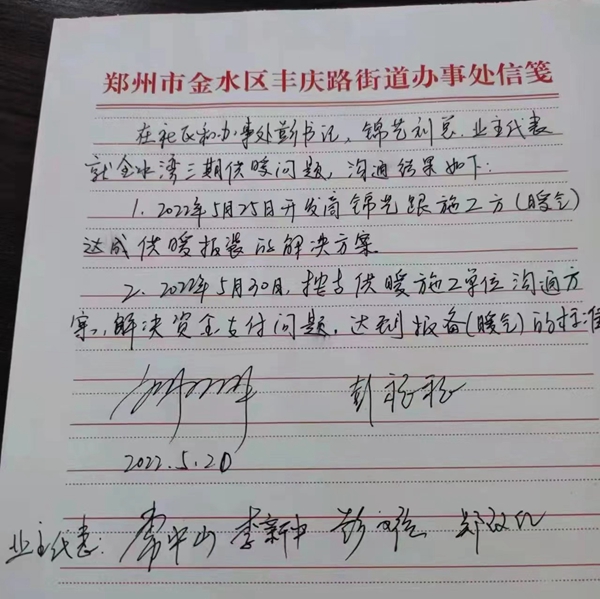 郑州市金水区丰庆路街道办事处信笺
在社区和办事处彭书记,锦艺刘总,业主代表
就金水湾三期供暖问题,沟通结果如下:
1.2022年5月25日开发商锦艺跟施工方(暖气)
达成供暖报装的解决方案.
2.2022年5月30日,按去供暖施工单位沟通方
案,解决资金支付问题,达到报备(暖气)的标准
彭
2022.5.20
业主代表: 常中山 李新中 彭